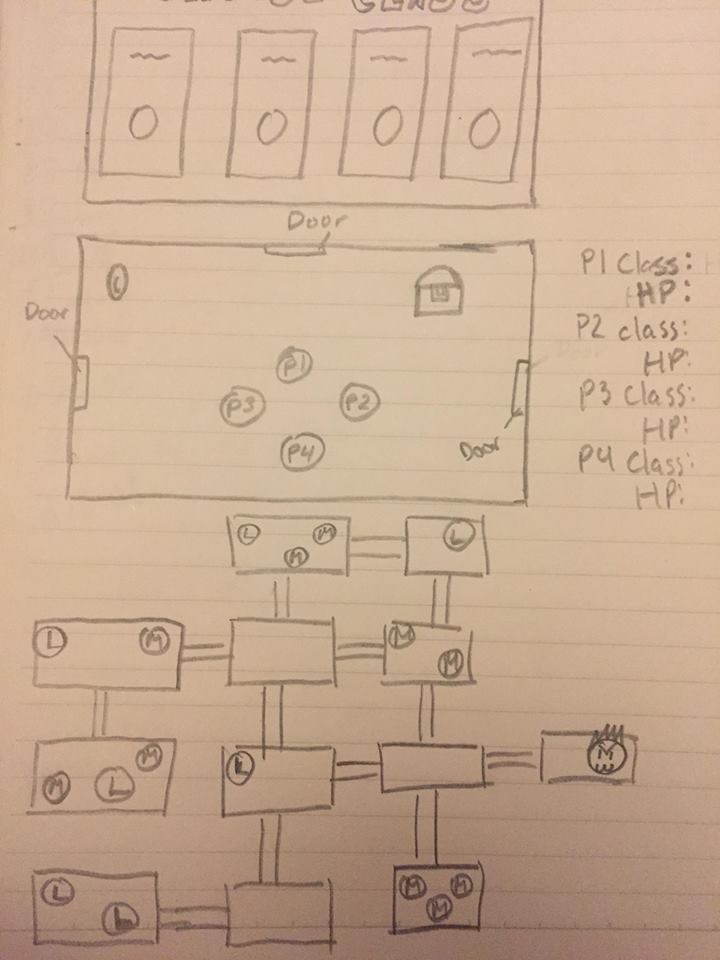 Door
Door
P1
P3 P2
P4
Door
P1 Class:
HP:
P2 class:
HP:
P3 Class:
HP:
P4 Class:
HP:
L M L
M
L M M
M
L M M
M L
L M M
L M